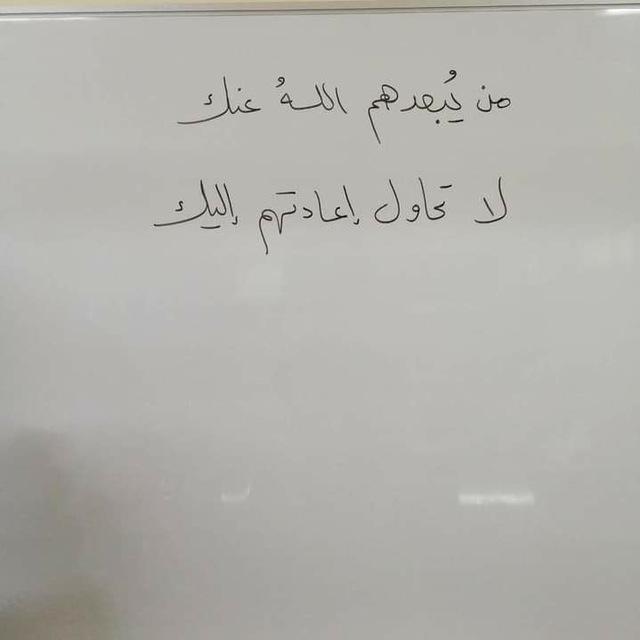 من يُبعدهم اللهُ عنك
لا تحاول إعادتهم إليك